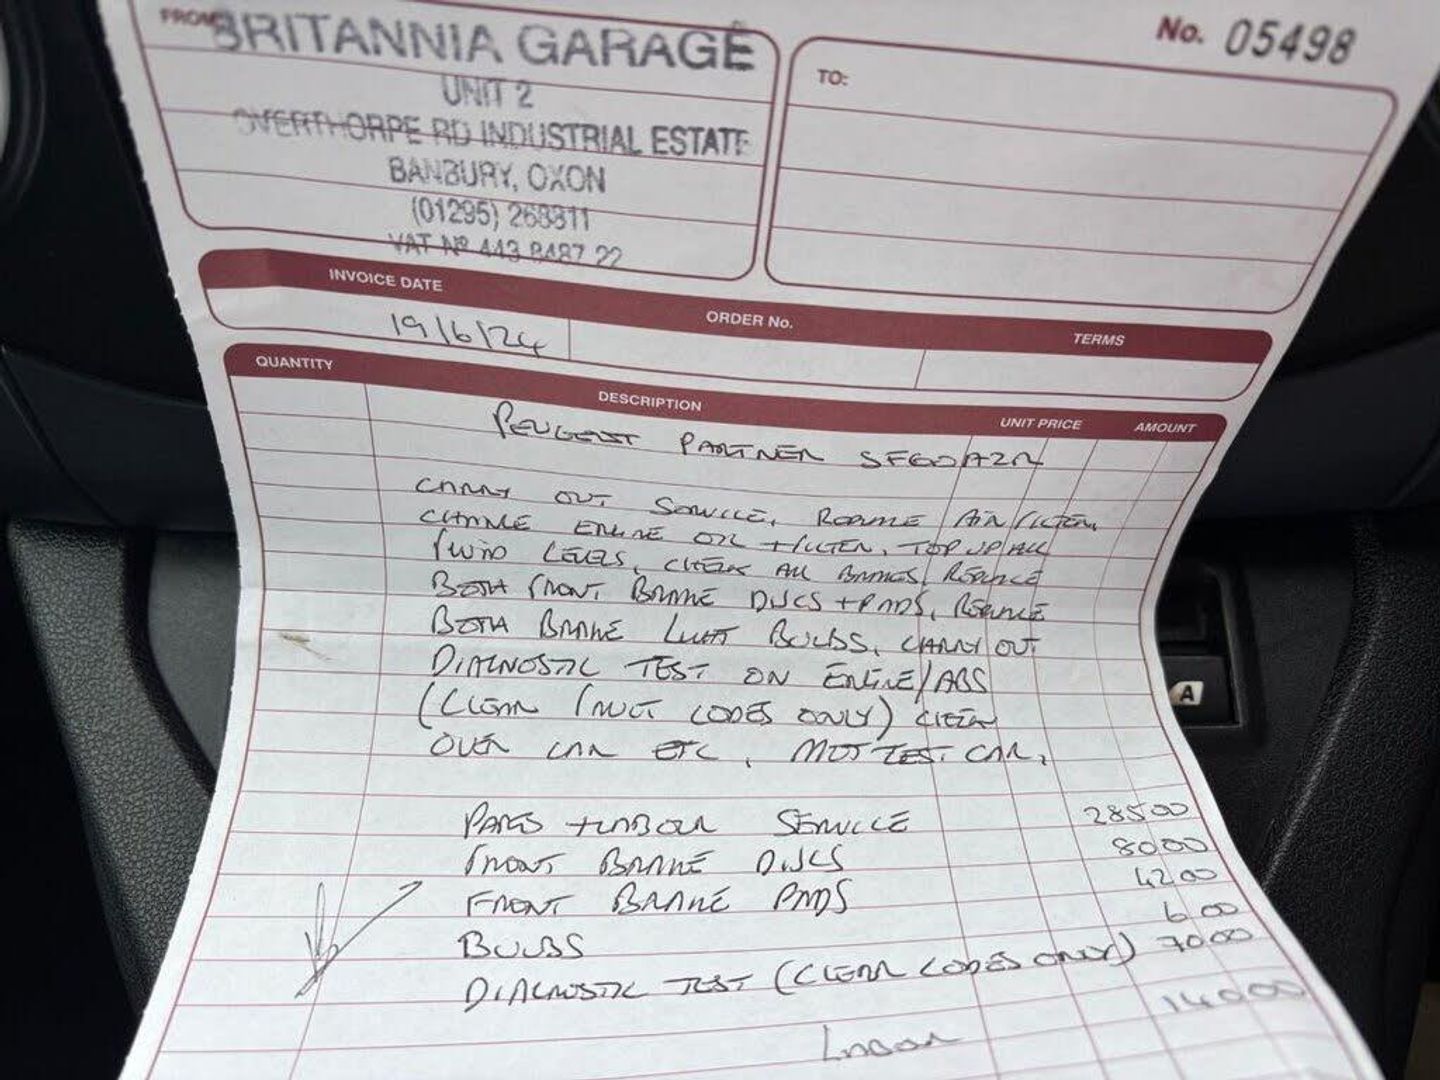 FROM
BRITANNIA GARAGE
UNIT 2
OVERTHORPE RD INDUSTRIAL ESTATE
BANBURY, OXON
(01295) 268811
VAT Nº 443 8487 22
No. 05498
TO:
INVOICE DATE
ORDER No.
TERMS
19/6/24
QUANTITY
DESCRIPTION
UNIT PRICE
AMOUNT
PEUGEOT PARTNER SF60AZR
CARRY OUT SERVICE, REPLACE AIR FILTER,
CHANGE ENGINE OIL + FILTER, TOP UP ALL
FLUID LEVELS, CHECK ALL BRAKES, REPLACE
BOTH FRONT BRAKE DISCS + PADS, REPLACE
BOTH BRAKE LIGHT BULBS, CARRY OUT
DIAGNOSTIC TEST ON ENGINE/ABS
(CLEAR FAULT CODES ONLY) CHECK
OVER CAR ETC, MOT TEST CAR,
PARTS + LABOUR SERVICE 285 00
FRONT BRAKE DISCS 80 00
FRONT BRAKE PADS 42 00
BULBS 6 00
DIAGNOSTIC TEST (CLEAR CODES ONLY) 70 00
LABOUR 140 00
A